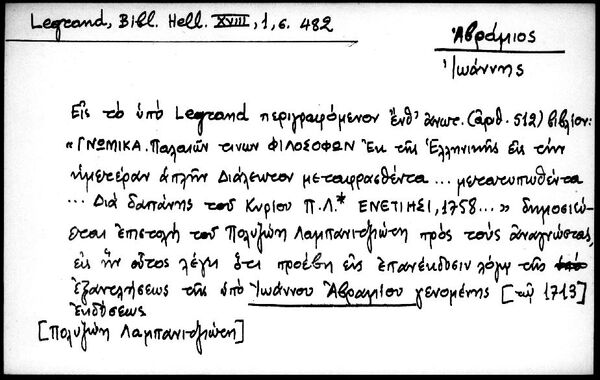 Legrand, Bibl. Hell. XVIII, 1, σ. 482
Ἀβράμιος
Ἰωάννης
Εἰς τὸ ὑπὸ Legrand περιγραφόμενον ἔνθ' ἀνωτ. (ἀριθ. 512) βιβλίον:
« ΓΝΩΜΙΚΑ. Παλαιῶν τινων ΦΙΛΟΣΟΦΩΝ Ἐκ τῆς Ἑλληνικῆς εἰς τὴν
ἡμετέραν ἁπλῆν Διάλεκτον μεταφρασθέντα ... μετατυπωθέντα
... Διὰ δαπάνης τοῦ Κυρίου Π.Λ.* ΕΝΕΤΙΗΣΙ, 1758 ... » δημοσιεύ-
εται ἐπιστολὴ τοῦ Πολυζώη Λαμπανιτζιώτη πρὸς τοὺς ἀναγνώστας,
εἰς ἣν οὗτος λέγει ὅτι προέβη εἰς ἐπανέκδοσιν λόγῳ τῆς
ἐξαντλήσεως τῆς ὑπὸ Ἰωάννου Ἀβραμίου γενομένης [τῷ 1713]
ἐκδόσεως
[Πολυζώη Λαμπανιτζιώτη]